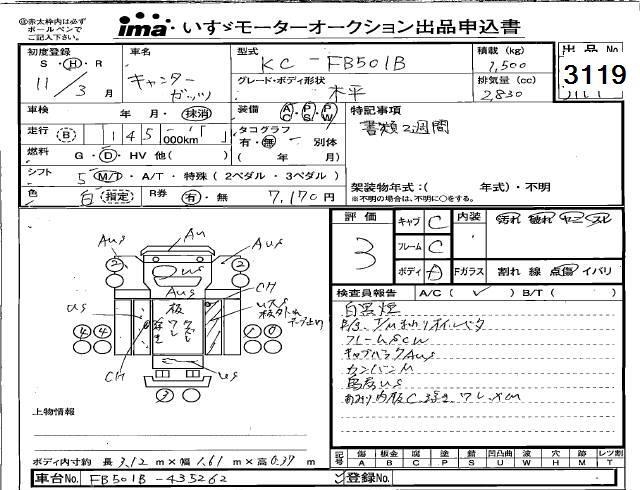 ◎赤太枠内は必ず
ボールペンで
ご記入下さい。
ima いすゞモーターオークション出品申込書
初度登録 S・H・R 11/3月
車名 キャンター ガッツ
型式 KC-FB501B
グレード・ボディ形状 木平
積載 (kg) 1,500
排気量 (cc) 2,830
出品No 3119
車検 年・月・抹消
装備 AC・PS・PW
特記事項
書類2週間
走行 B 145 000km
タコグラフ 有・無 別体
( 年 月)
燃料 G・D・HV 他( )
シフト 5 M/T・A/T・特殊(2ペダル・3ペダル)
架装物年式:( 年式)・不明
※不明の場合は、不明に○をする。
色 白 指定 R券 有・無 7,170円
評価 3
キャブ C 内装 汚れ 破れ ヤニ スレ
フレーム C
ボディ A Fガラス 割れ 線 点傷 イバリ
検査員報告 A/C( ✓ ) B/T( )
白黒煙
フレームSCW
キャブハラクAUS
カンバンM
鳥居US
あおり内板C 浮き ワレ×M
Au
Aus
Aus
2
2
us
Aus
CH
us
板
4
4
CH
us
3
上物情報
ボディ内寸約 長 3.12 m×幅 1.61 m×高 0.37 m
記号 傷 A 板金 B 腐 C 塗 P 錆 S 凹凸曲 U 波 W 穴 H 跡 M レツ割 T
車台No. FB501B-435262
登録No.